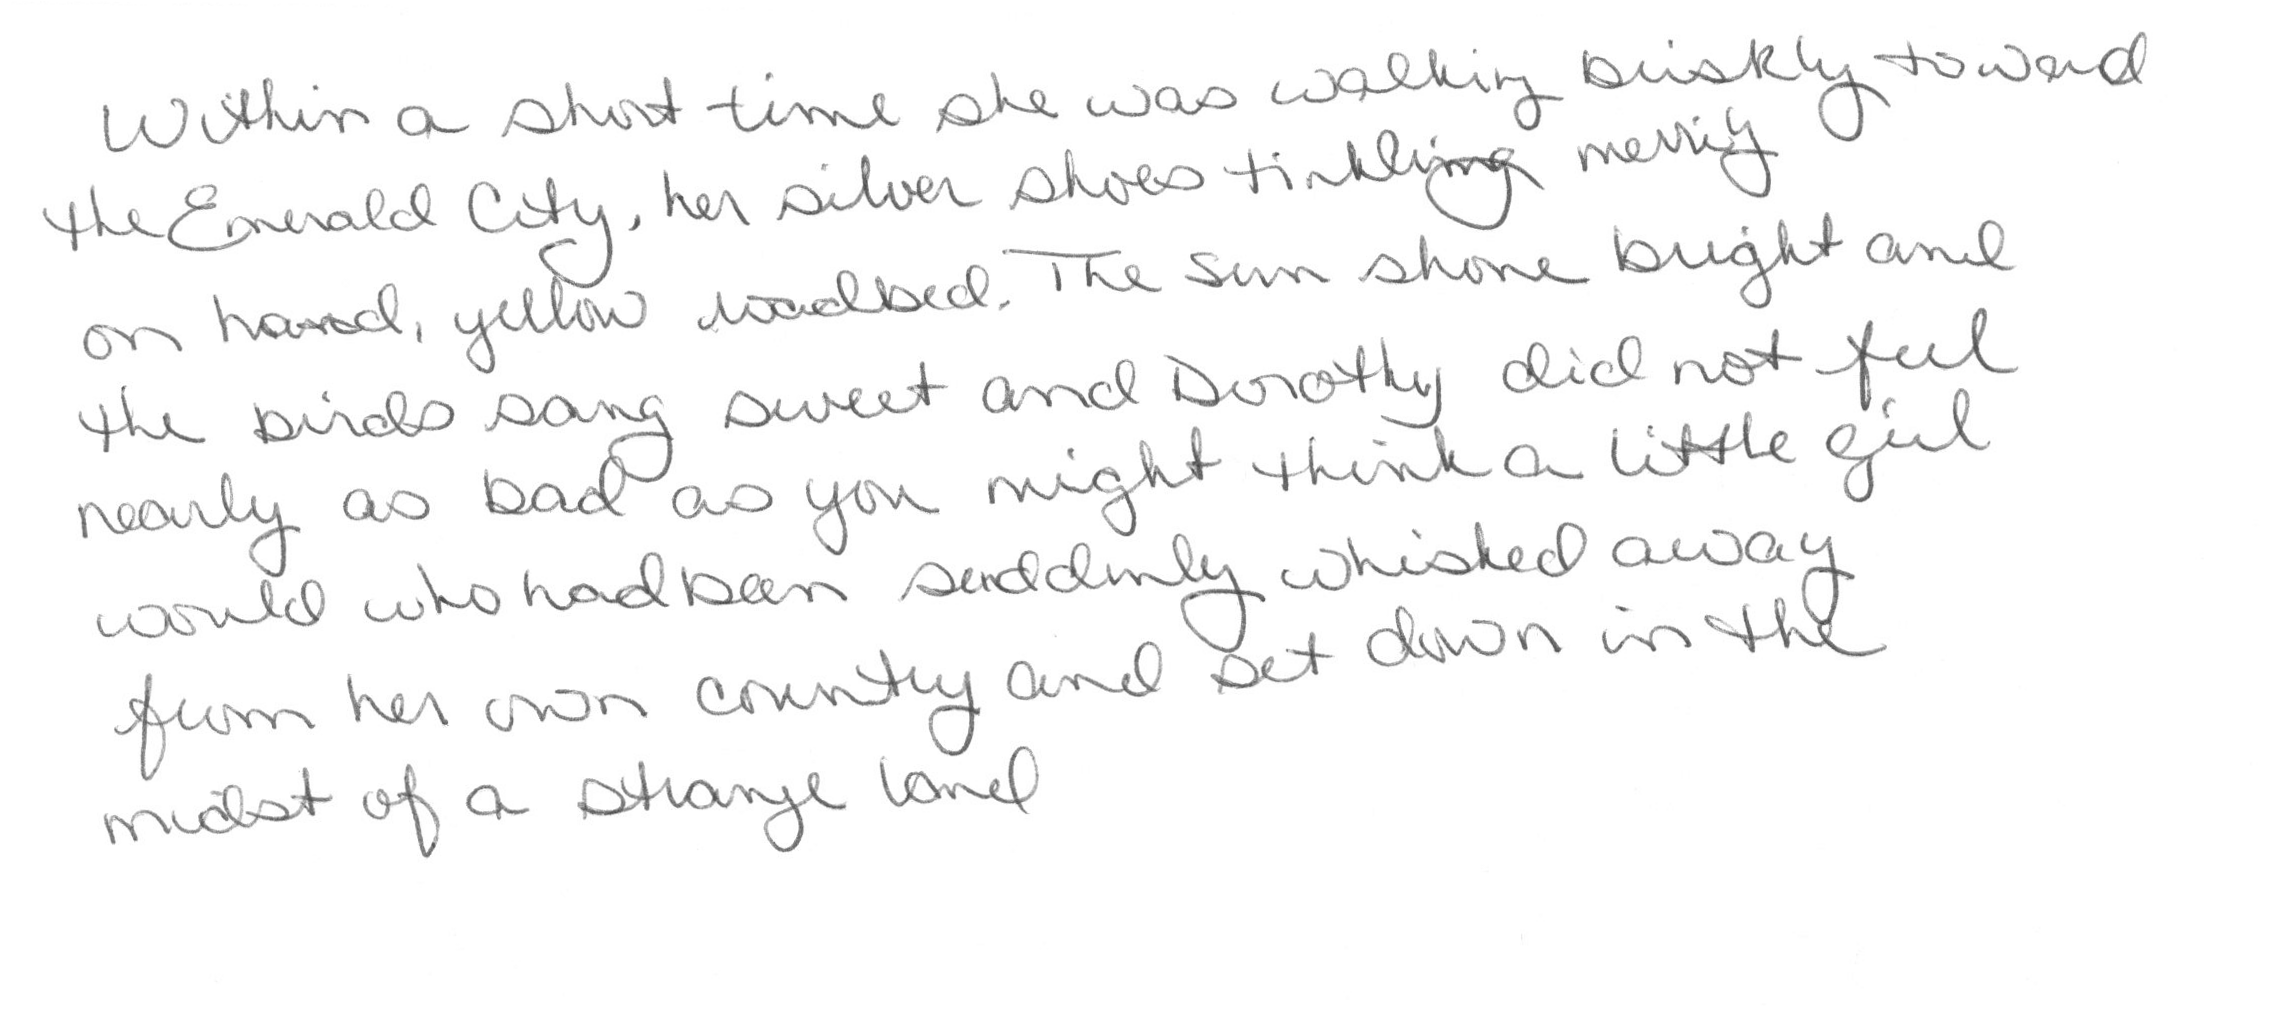 Within a short time she was walking briskly toward
the Emerald City, her silver shoes tinkling merrily
on hard, yellow roadbed. The sun shone bright and
the birds sang sweet and Dorothy did not feel
nearly as bad as you might think a little girl
would who had been suddenly whisked away
from her own country and set down in the
midst of a strange land